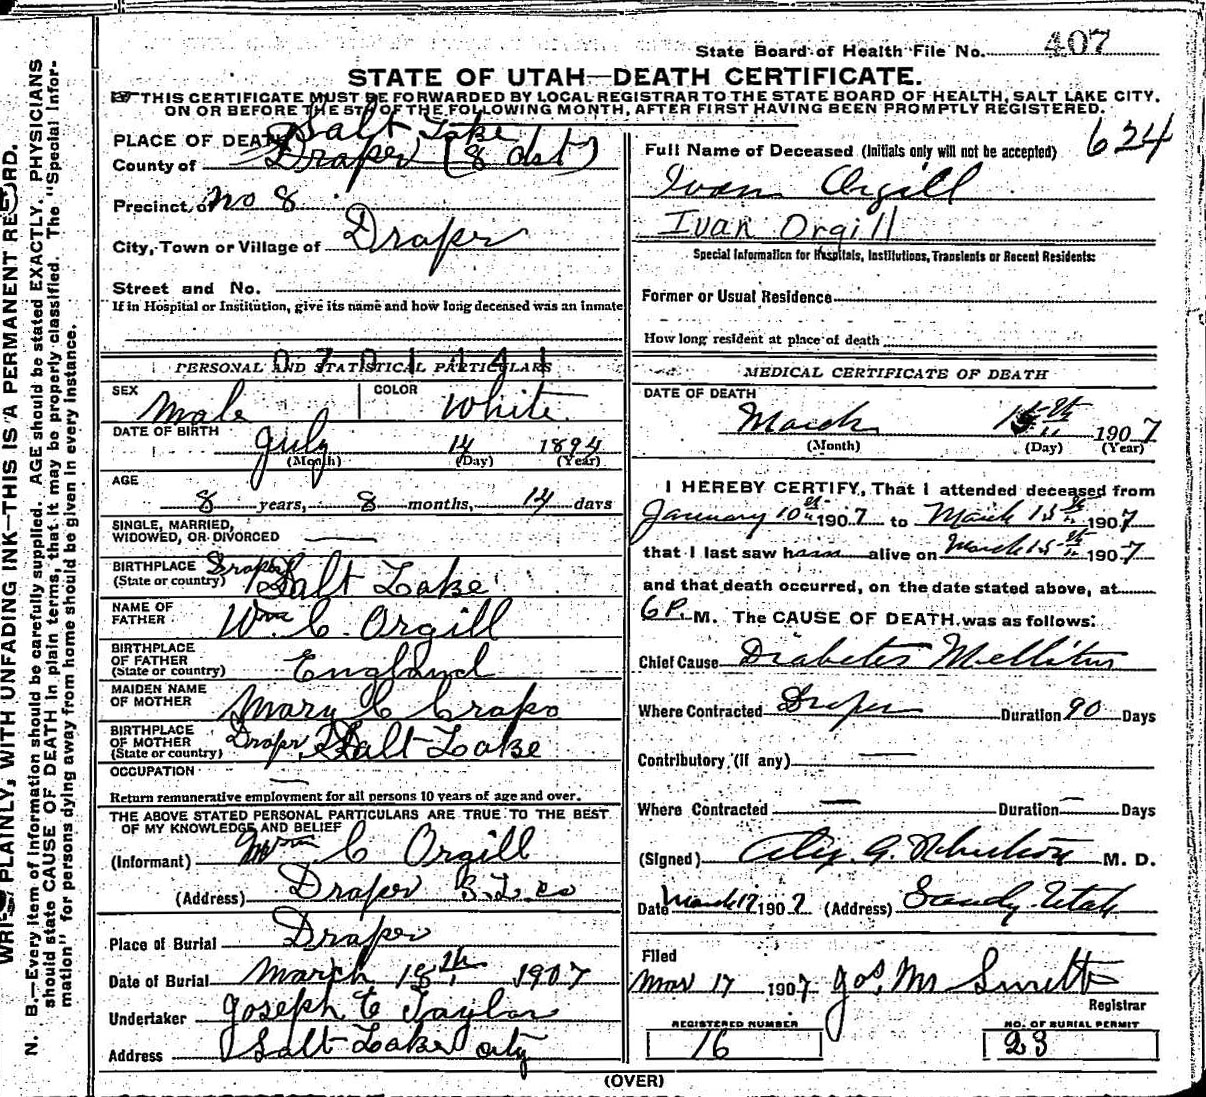 State Board of Health File No. 407
STATE OF UTAH—DEATH CERTIFICATE.
THIS CERTIFICATE MUST BE FORWARDED BY LOCAL REGISTRAR TO THE STATE BOARD OF HEALTH, SALT LAKE CITY,
ON OR BEFORE THE 5TH OF THE FOLLOWING MONTH, AFTER FIRST HAVING BEEN PROMPTLY REGISTERED.
PLACE OF DEATH Salt Lake
County of Draper (8 dst)
Precinct of No 8
City, Town or Village of Draper
Street and No.
If in Hospital or Institution, give its name and how long deceased was an inmate
0701141
PERSONAL AND STATISTICAL PARTICULARS
SEX Male COLOR White
DATE OF BIRTH July 14 1894
(Month) (Day) (Year)
AGE
8 years, 8 months, 14 days
SINGLE, MARRIED,
WIDOWED, OR DIVORCED —
BIRTHPLACE
(State or country) Draper Salt Lake
NAME OF
FATHER Wm C. Orgill
BIRTHPLACE
OF FATHER
(State or country) England
MAIDEN NAME
OF MOTHER Mary C Crapo
BIRTHPLACE
OF MOTHER
(State or country) Draper Salt Lake
OCCUPATION —
Return remunerative employment for all persons 10 years of age and over.
THE ABOVE STATED PERSONAL PARTICULARS ARE TRUE TO THE BEST
OF MY KNOWLEDGE AND BELIEF
(Informant) Wm C Orgill
(Address) Draper S.L. co
Place of Burial Draper
Date of Burial March 18th 1907
Undertaker Joseph E Taylor
Address Salt Lake City
624
Full Name of Deceased (Initials only will not be accepted)
Ivan Orgill
Ivan Orgill
Special Information for Hospitals, Institutions, Transients or Recent Residents:
Former or Usual Residence
How long resident at place of death
MEDICAL CERTIFICATE OF DEATH
DATE OF DEATH
March 15th 1907
(Month) (Day) (Year)
I HEREBY CERTIFY, That I attended deceased from
January 10th 1907 to March 15th 1907
that I last saw him alive on March 15th 1907
and that death occurred, on the date stated above, at
6 P. M. The CAUSE OF DEATH was as follows:
Chief Cause Diabetes Mellitus
Where Contracted Draper Duration 90 Days
Contributory (if any) —
Where Contracted — Duration — Days
(Signed) M. D.
Date March 17 1907 (Address) Sandy Utah
Filed
Mar 17 1907 Jos. M Smith
Registrar
REGISTERED NUMBER
16
NO. OF BURIAL PERMIT
23
(OVER)
WRITE PLAINLY, WITH UNFADING INK—THIS IS A PERMANENT RECORD.
N. B.—Every item of Information should be carefully supplied. AGE should be stated EXACTLY. PHYSICIANS
should state CAUSE OF DEATH in plain terms, that it may be properly classified. The "Special Infor-
mation" for persons dying away from home should be given in every instance.